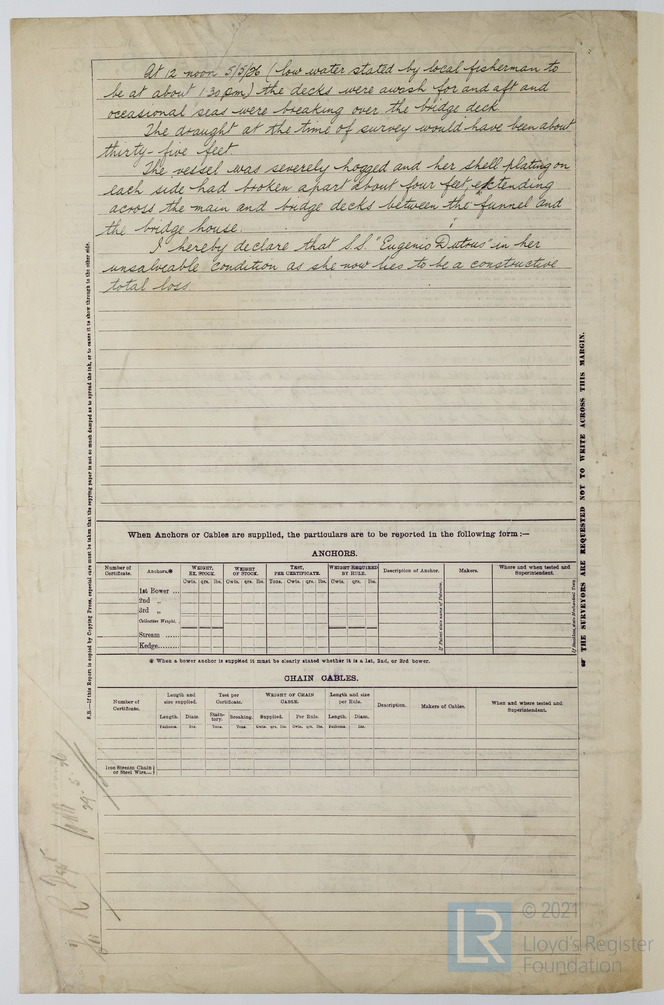 At 12 noon 5/5/26 (low water stated by local fisherman to
be at about 1.30 pm) the decks were awash for and aft and
occasional seas were breaking over the bridge deck
The draught at the time of survey would have been about
thirty-five feet
The vessel was severely hogged and her shell plating on
each side had broken apart about four feet, extending
across the main and bridge decks between the funnel and
the bridge house.
I hereby declare that S.S. "Eugenio Dutous" in her
unsalveable condition as she now lies to be a constructive
total loss.
N.B.—If this Report is copied by Copying Press, especial care must be taken that the copying paper is not so much damped as to spread the ink, or to cause it to show through to the other side.
THE SURVEYORS ARE REQUESTED NOT TO WRITE ACROSS THIS MARGIN.
When Anchors or Cables are supplied, the particulars are to be reported in the following form:—
ANCHORS.
Number of Certificate. Anchors.* WEIGHT, EX. STOCK. WEIGHT OF STOCK. TEST, PER CERTIFICATE. WEIGHT REQUIRED BY RULE. Description of Anchor. Makers. Where and when tested and Superintendent.
Cwts. qrs. lbs. Cwts. qrs. lbs. Tons. Cwts. qrs. lbs. Cwts. qrs. lbs.
1st Bower ...
2nd „
3rd „
Collective Weight.
Stream ......
Kedge........
* When a bower anchor is supplied it must be clearly stated whether it is a 1st, 2nd, or 3rd bower.
CHAIN CABLES.
Number of Certificate. Length and size supplied. Test per Certificate. WEIGHT OF CHAIN CABLE. Length and size per Rule. Description. Makers of Cables. When and where tested and Superintendent.
Length. Diam. Statutory. Breaking. Supplied. Per Rule. Length. Diam.
Fathoms. Ins. Tons. Tons. Cwts. qrs. lbs. Cwts. qrs. lbs. Fathoms. Ins.
Iron Stream Chain or Steel Wire...
29.5.26
© 2021
LR
Lloyd's Register
Foundation